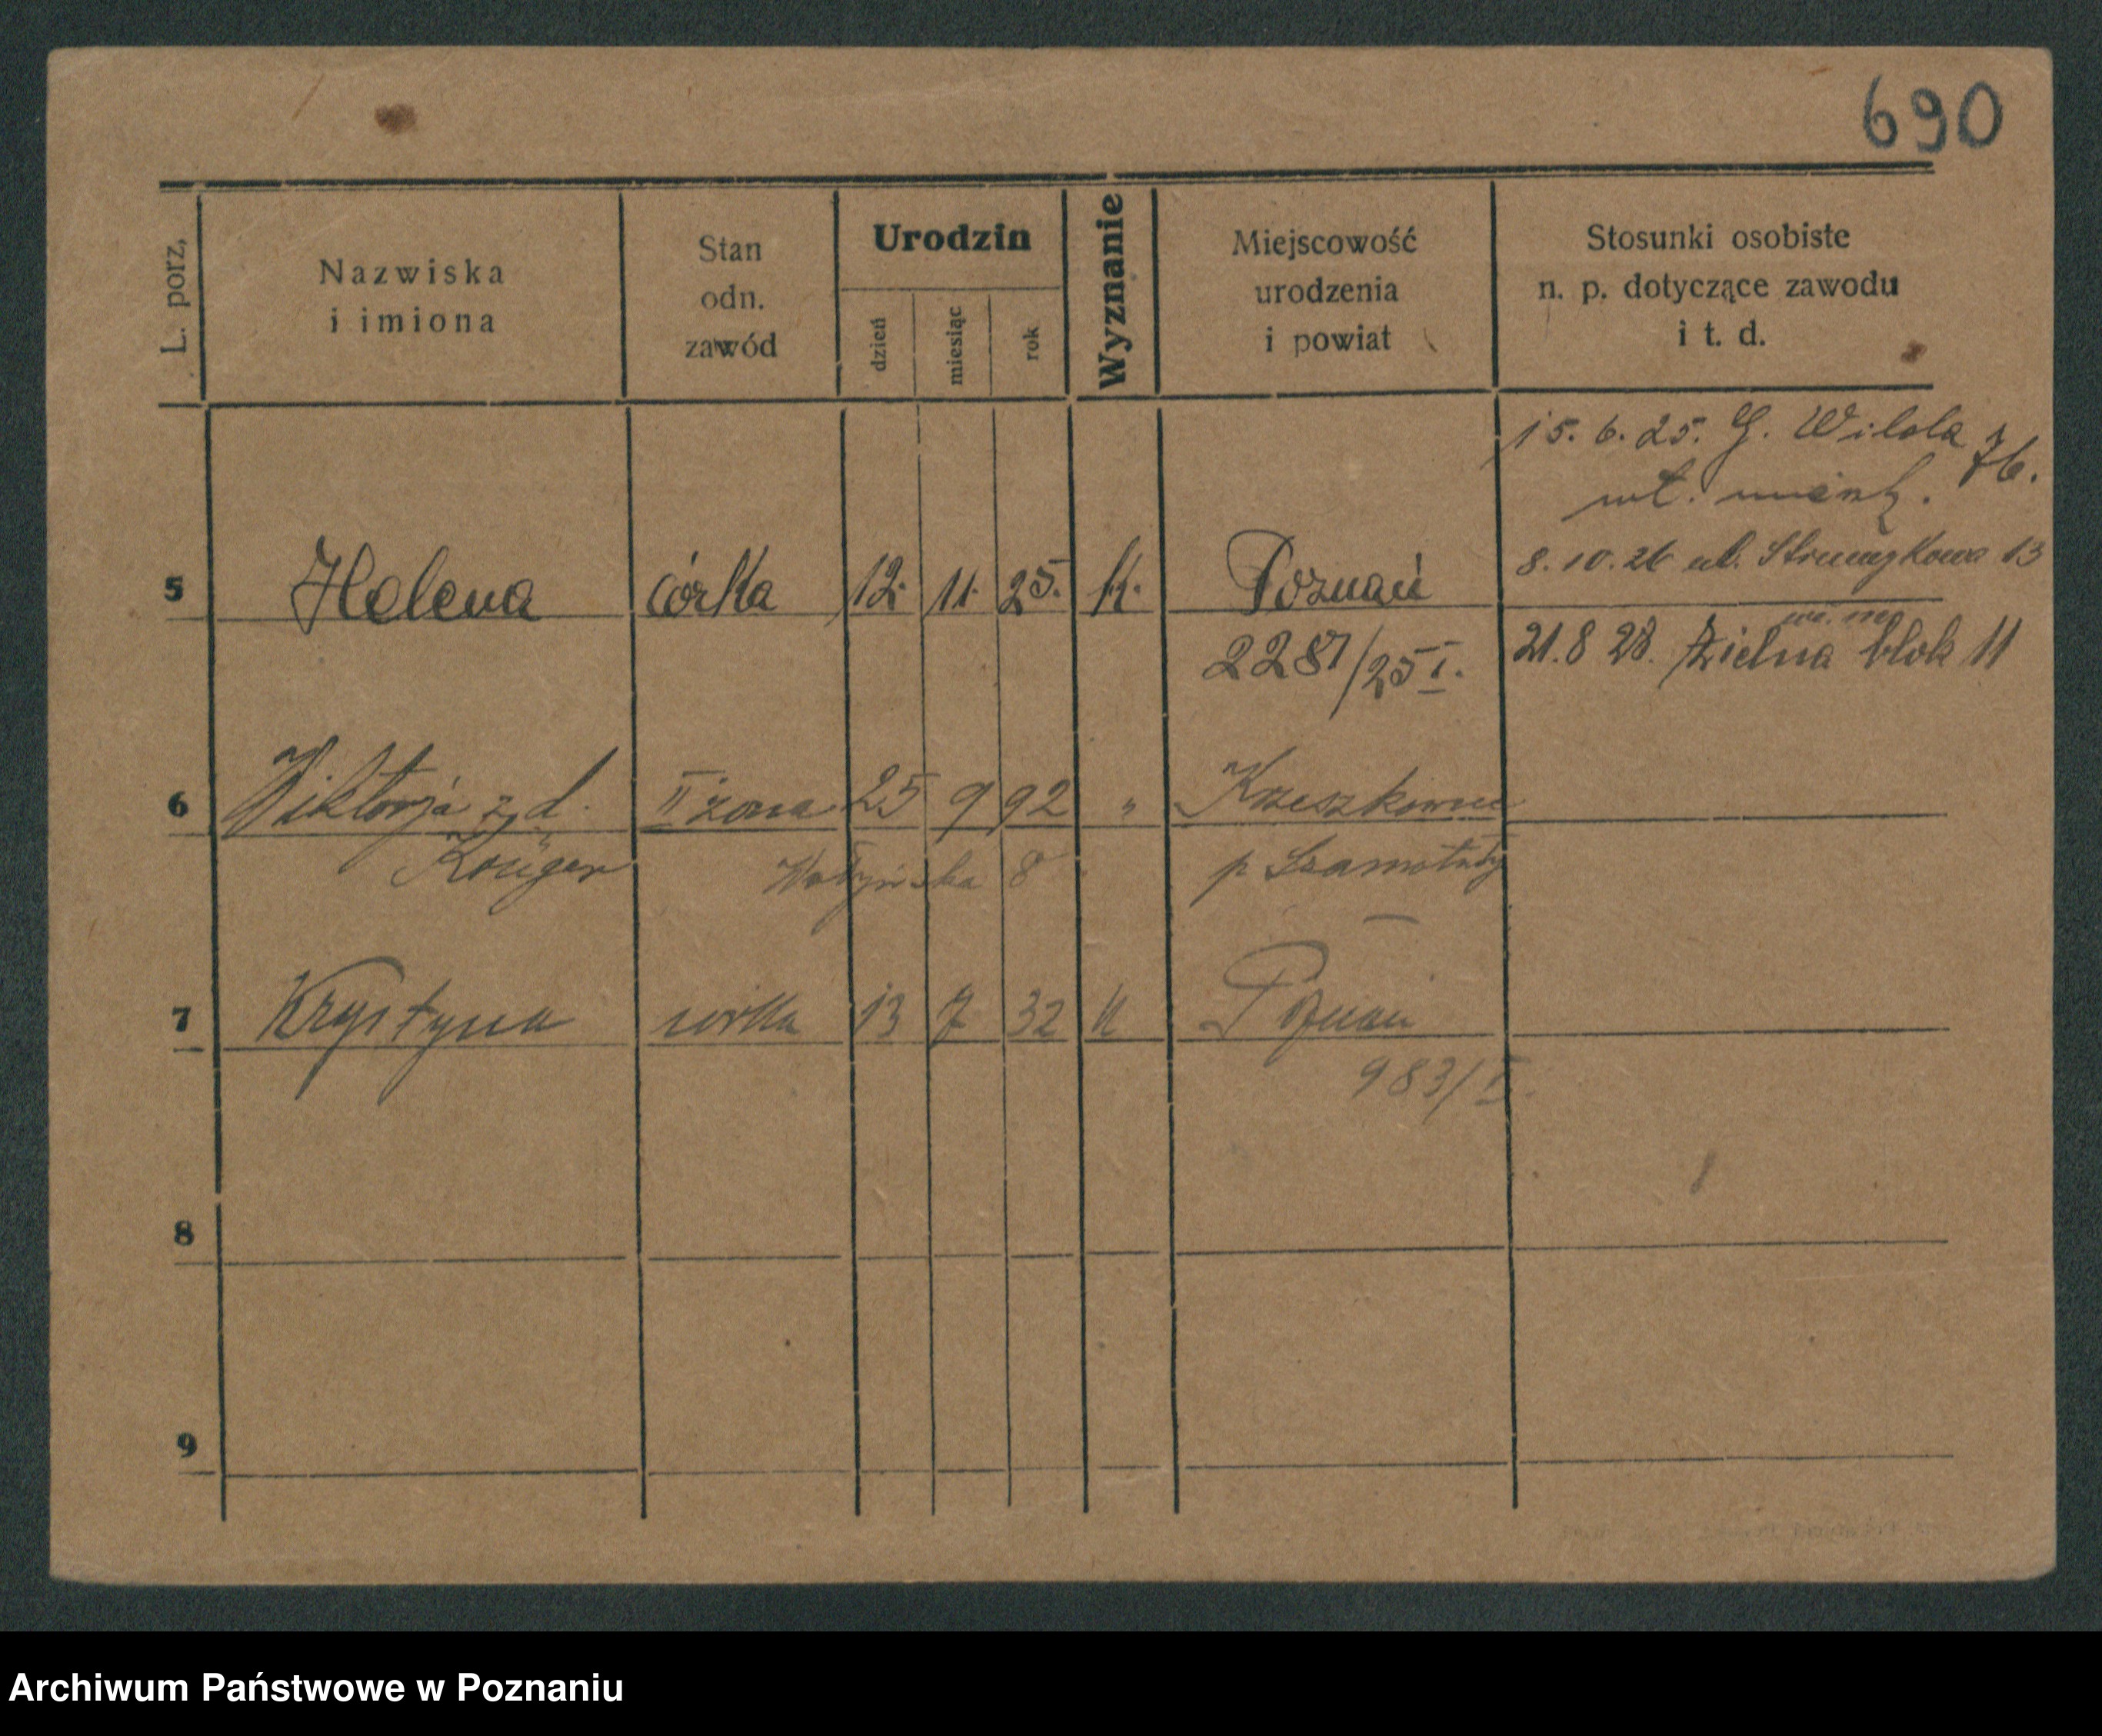 690
L. porz.
Nazwiska
i imiona
Stan
odn.
zawód
Urodzin
dzień
miesiąc
rok
Wyznanie
Miejscowość
urodzenia
i powiat
Stosunki osobiste
n. p. dotyczące zawodu
i t. d.
15. 6. 25. G. Wilda 76.
8. 10. 26 ul. Strumykowa 13
5 Helena córka 12. 11. 25. k. Poznań
21. 8 28. Zielna blok 11
2287/25 I.
6 Wiktorja z d. II żona 25 9 92 "
Krüger Wołyńska 8 p Szamotuły
7 Krystyna córka 13 7 32 k Poznań
983/I.
8
9
Archiwum Państwowe w Poznaniu